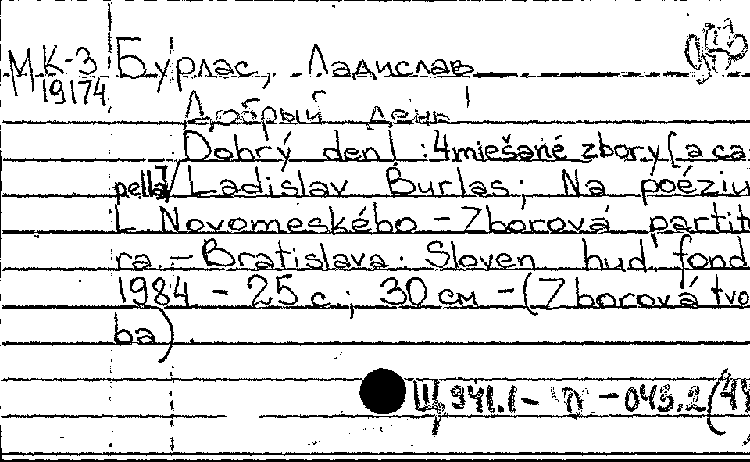 МК-3 Бурлас, Ладислав
19174
Добрый день!
Dobrý deň! : 4 miešané zbory [a ca
pella] / Ladislav Burlas; Na poéziu
L. Novomeského - Zborová partitú
ra. - Bratislava: Sloven. hud. fond
1984 - 25 с.; 30 см - (Zborová tvo
ba).
Щ 941.1- -043.2(44